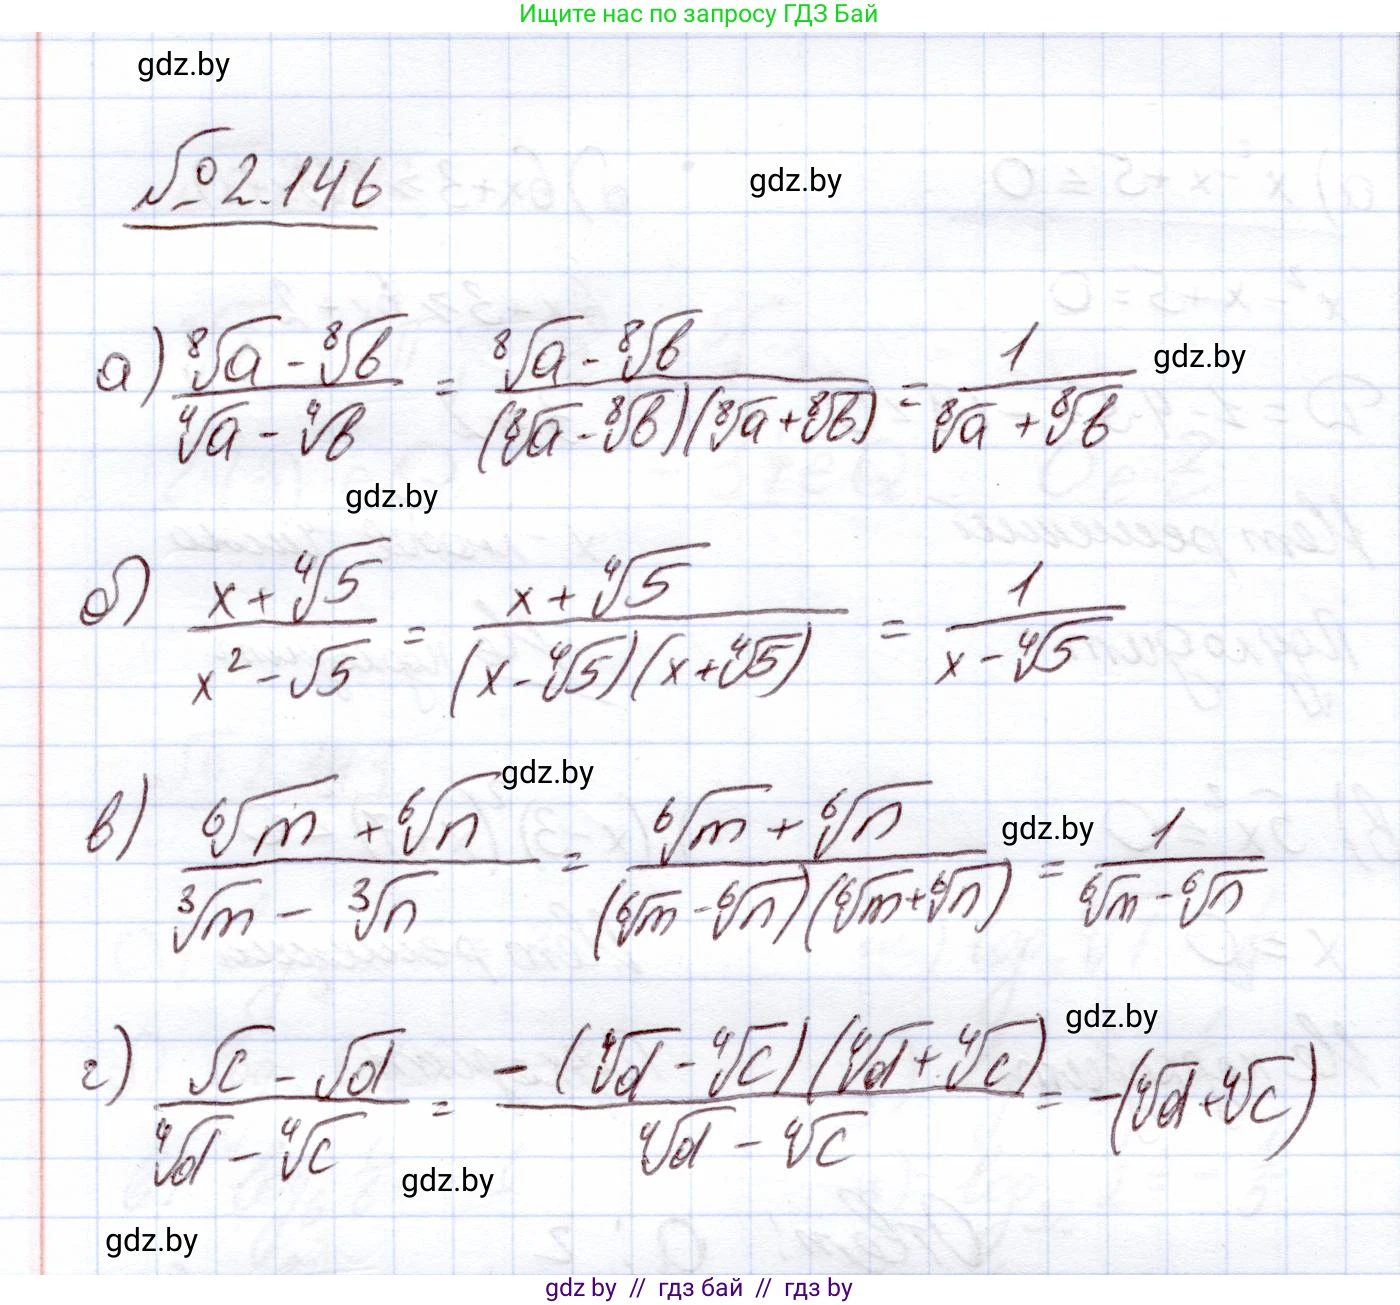 Ищите нас по запросу ГДЗ Бай
gdz.by
№ 2.146
gdz.by
а) (⁸√a - ⁸√b)/(⁴√a - ⁴√b) = (⁸√a - ⁸√b)/((⁸√a - ⁸√b)(⁸√a + ⁸√b)) = 1/(⁸√a + ⁸√b)
gdz.by
gdz.by
б) (x + ⁴√5)/(x² - √5) = (x + ⁴√5)/((x - ⁴√5)(x + ⁴√5)) = 1/(x - ⁴√5)
gdz.by
в) (⁶√m + ⁶√n)/(³√m - ³√n) = (⁶√m + ⁶√n)/((⁶√m - ⁶√n)(⁶√m + ⁶√n)) = 1/(⁶√m - ⁶√n)
gdz.by
gdz.by
г) (√c - √d)/(⁴√d - ⁴√c) = -(⁴√d - ⁴√c)(⁴√d + ⁴√c)/(⁴√d - ⁴√c) = -(⁴√d + ⁴√c)
gdz.by
gdz.by
gdz by // гдз бай // гдз by